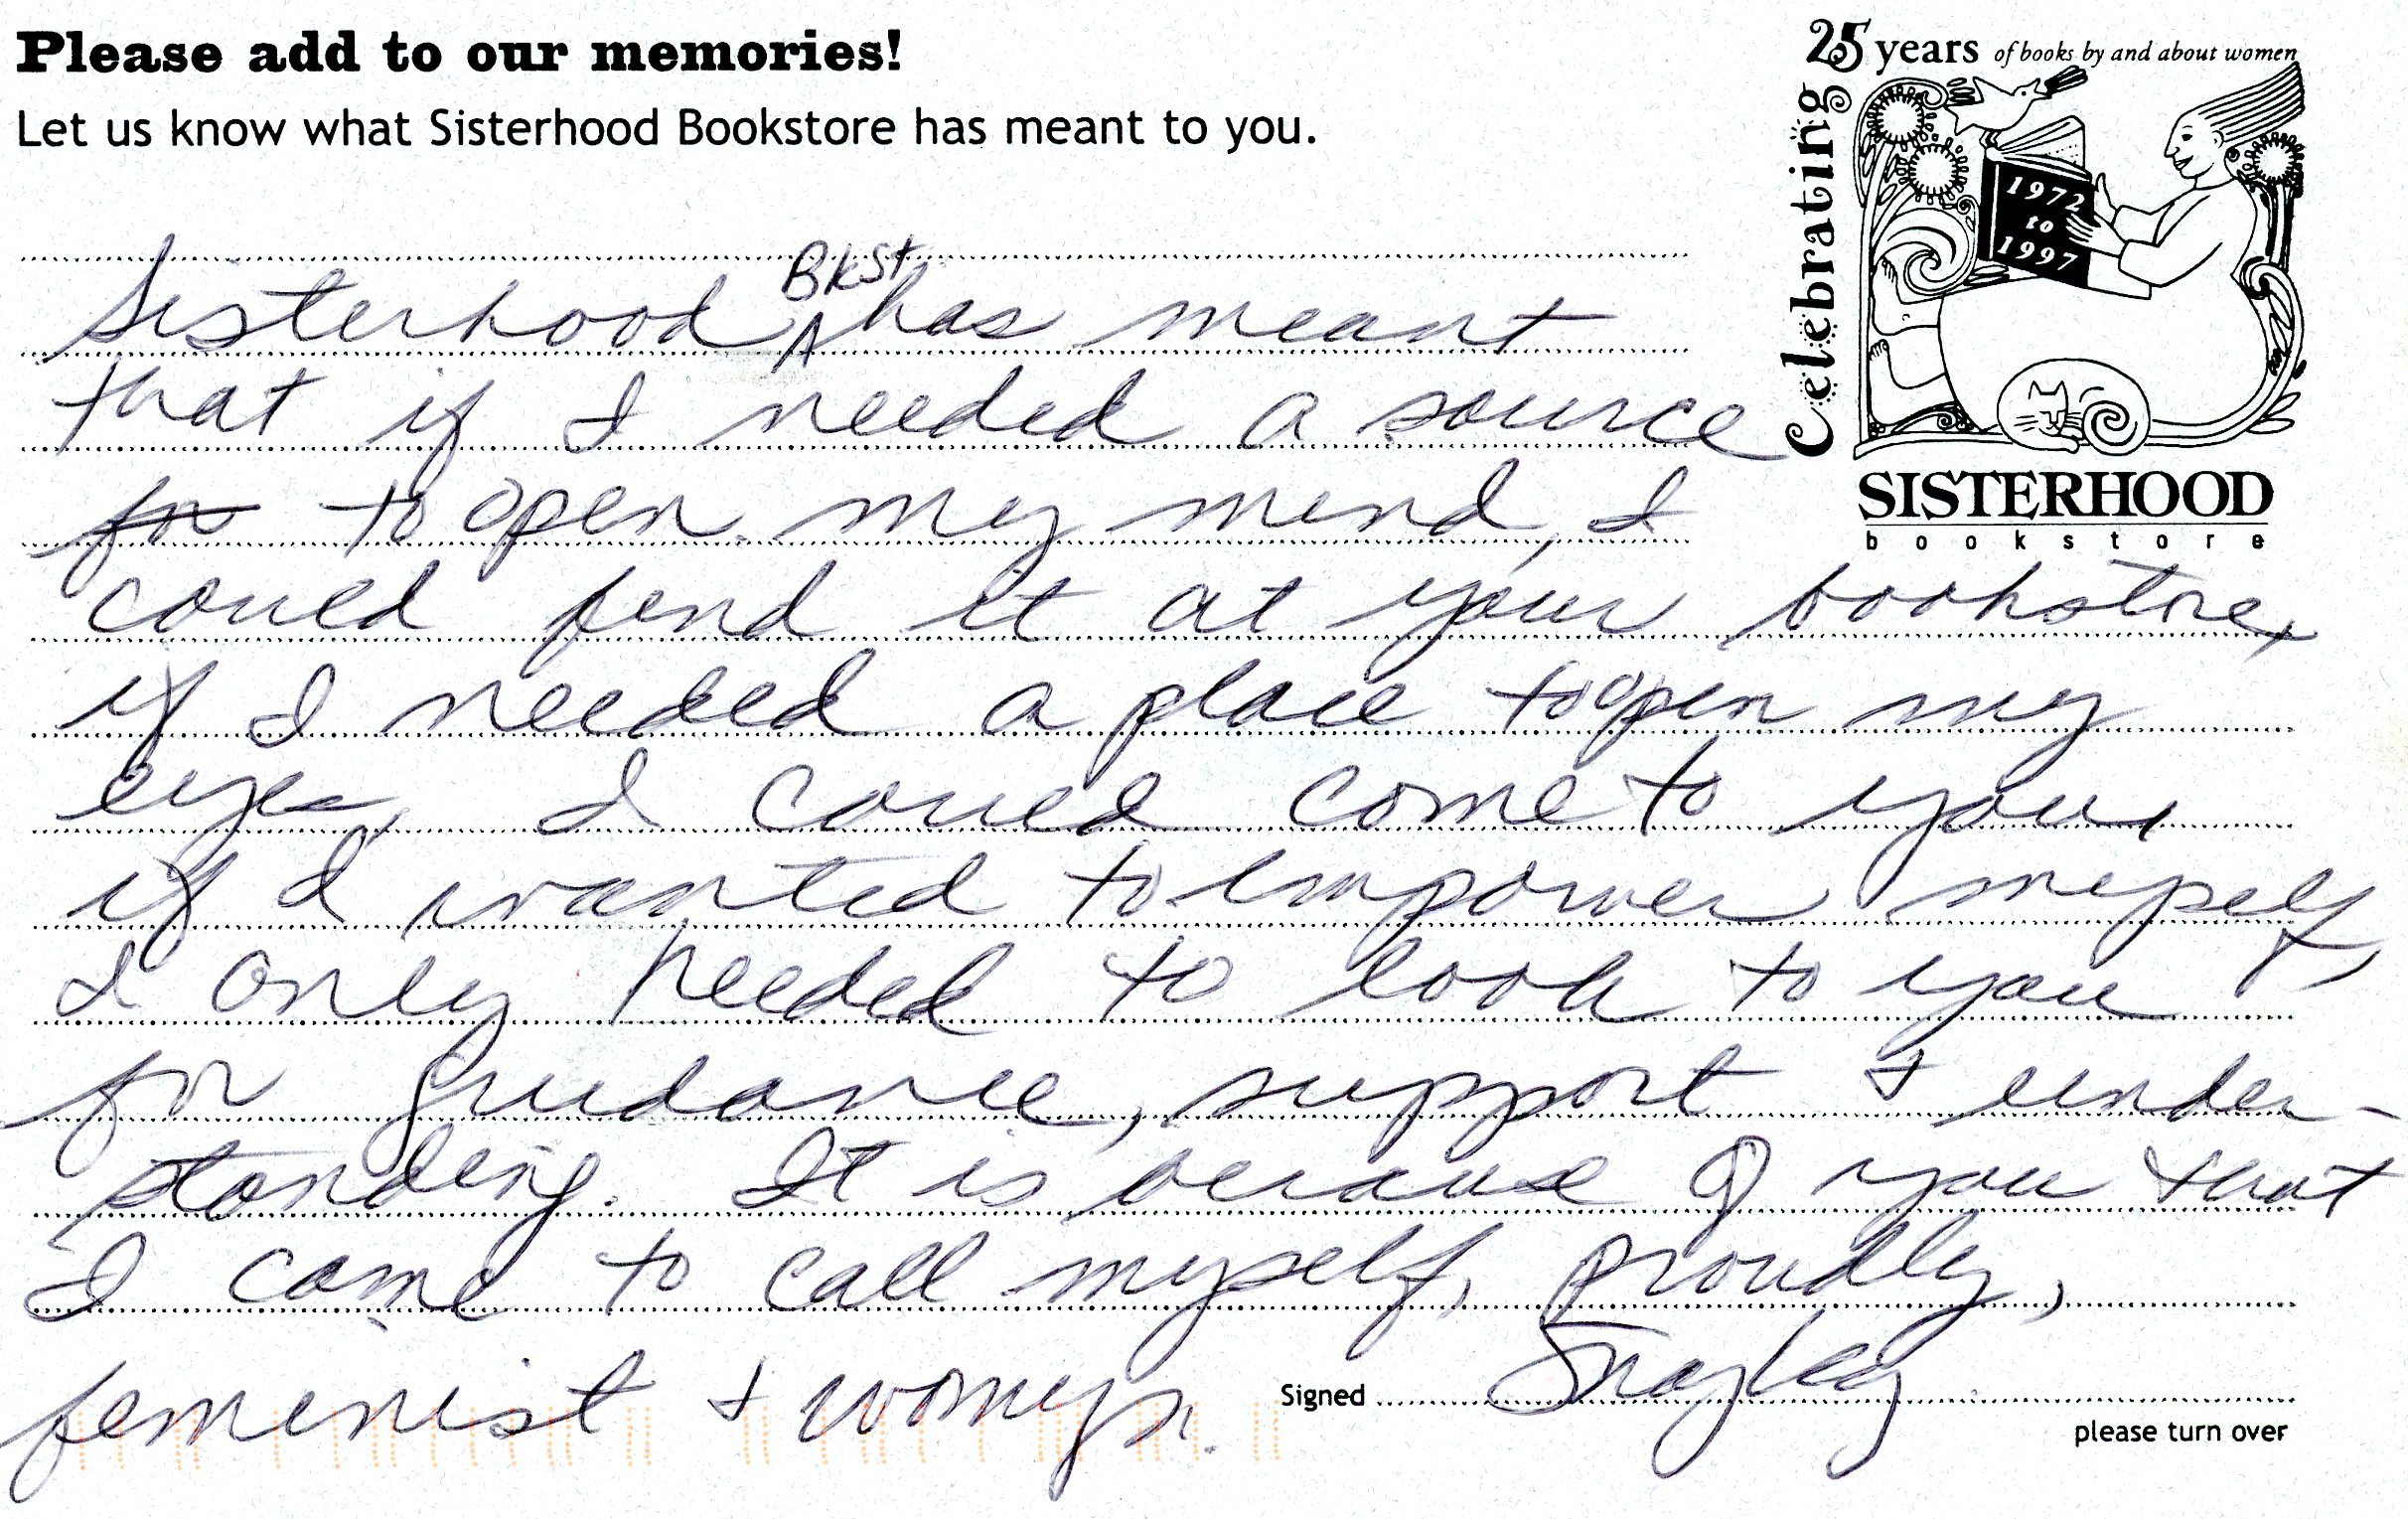 Please add to our memories!
Let us know what Sisterhood Bookstore has meant to you.
Celebrating
25 years of books by and about women
1972
to
1997
SISTERHOOD
bookstore
Sisterhood Bkst has meant
that if I needed a source
for to open my mind, I
could find it at your bookstore,
if I needed a place to open my
eyes, I could come to you,
if I wanted to empower myself,
I only needed to look to you
for guidance, support & under-
standing. It is because of you that
I came to call myself, proudly,
feminist & womyn.
Signed
please turn over